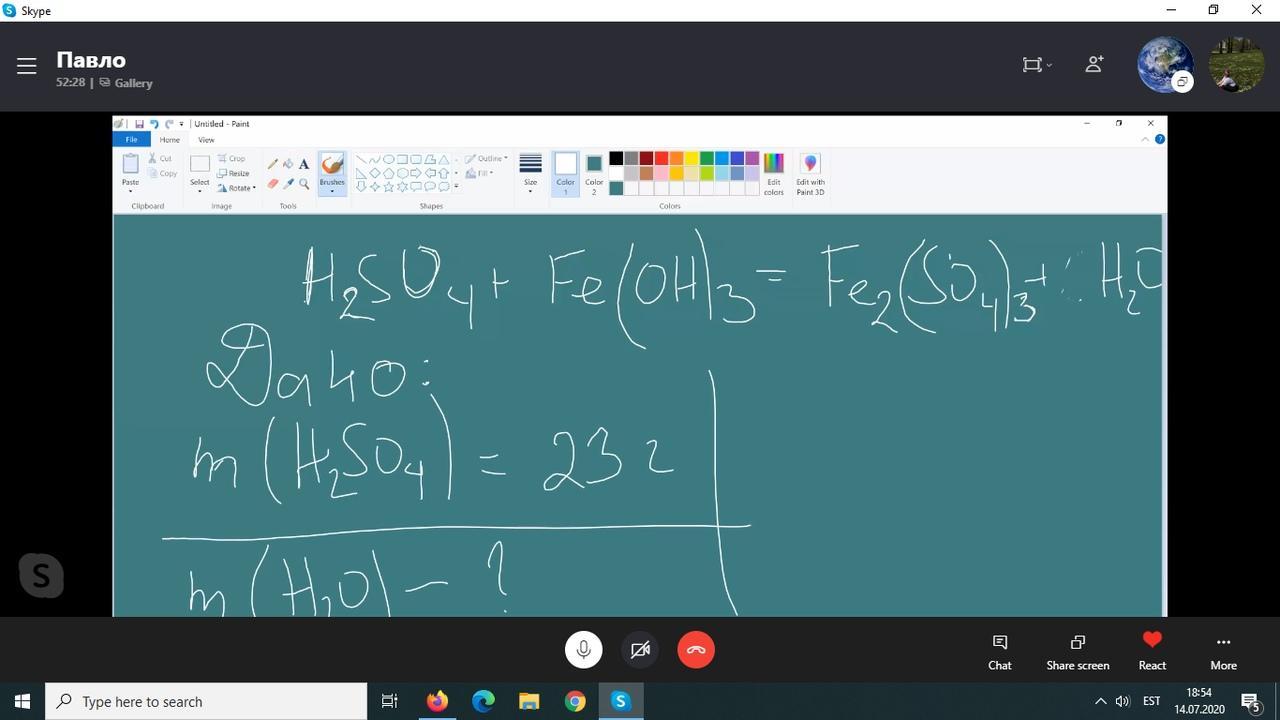 Skype
Павло
52:28 | Gallery
Untitled - Paint
File Home View
Paste Cut Copy Clipboard
Select Crop Resize Rotate Image
Tools
Brushes
Outline Fill Shapes
Size
Color 1 Color 2 Edit colors Colors
Edit with Paint 3D
H₂SO₄ + Fe(OH)₃ = Fe₂(SO₄)₃ + H₂O
Дано:
m(H₂SO₄) = 23 г
m(H₂O) - ?
S
Chat Share screen React More
Type here to search
EST
18:54
14.07.2020
5